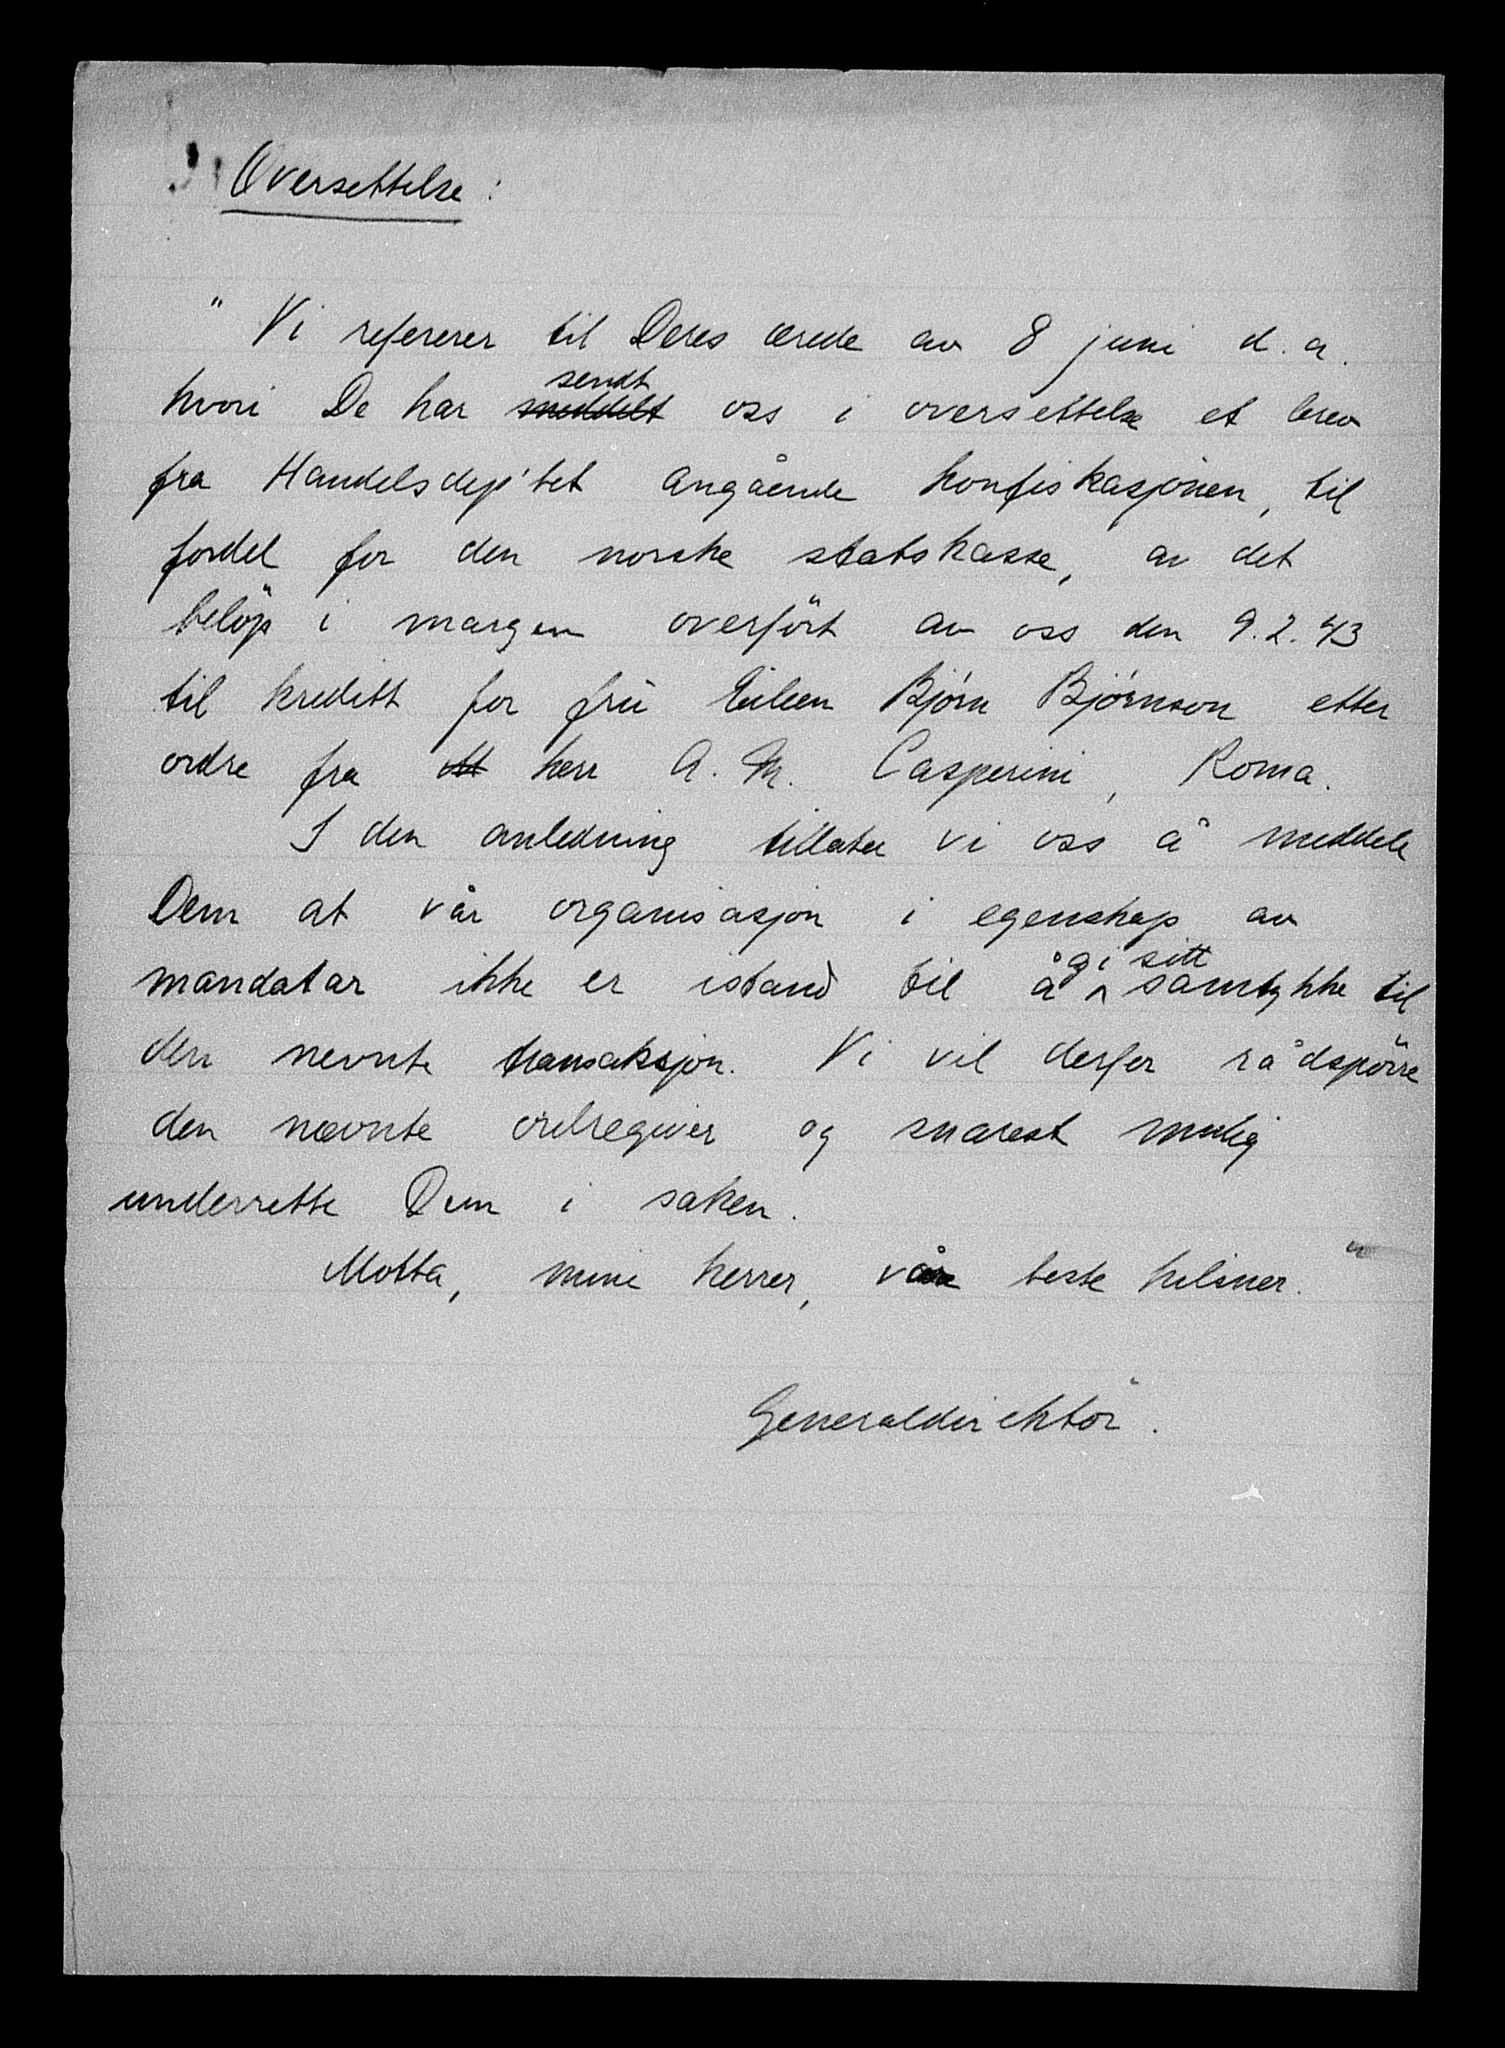 Oversettelse:
" Vi refererer til Deres ærede av 8 juni d.a.
hvori De har meddelt sendt oss i oversettelse et brev
fra Handelsdep'tet angående konfiskasjonen, til
fordel for den norske statskasse, av det
beløp i margen overført av oss den 9.2.43
til kreditt for fru Eileen Bjørn Bjørnson etter
ordre fra herr A. M. Casperini, Roma.
I den anledning tillater vi oss å meddele
Dem at vår organisasjon i egenskap av
mandatar ikke er istand til å gi sitt samtykke til
den nevnte transaksjon. Vi vil derfor rådspørre
den nevnte ordregiver og snarest mulig
underrette Dem i saken.
Motta, mine herrer, våre beste hilsner. "
Generaldirektör.